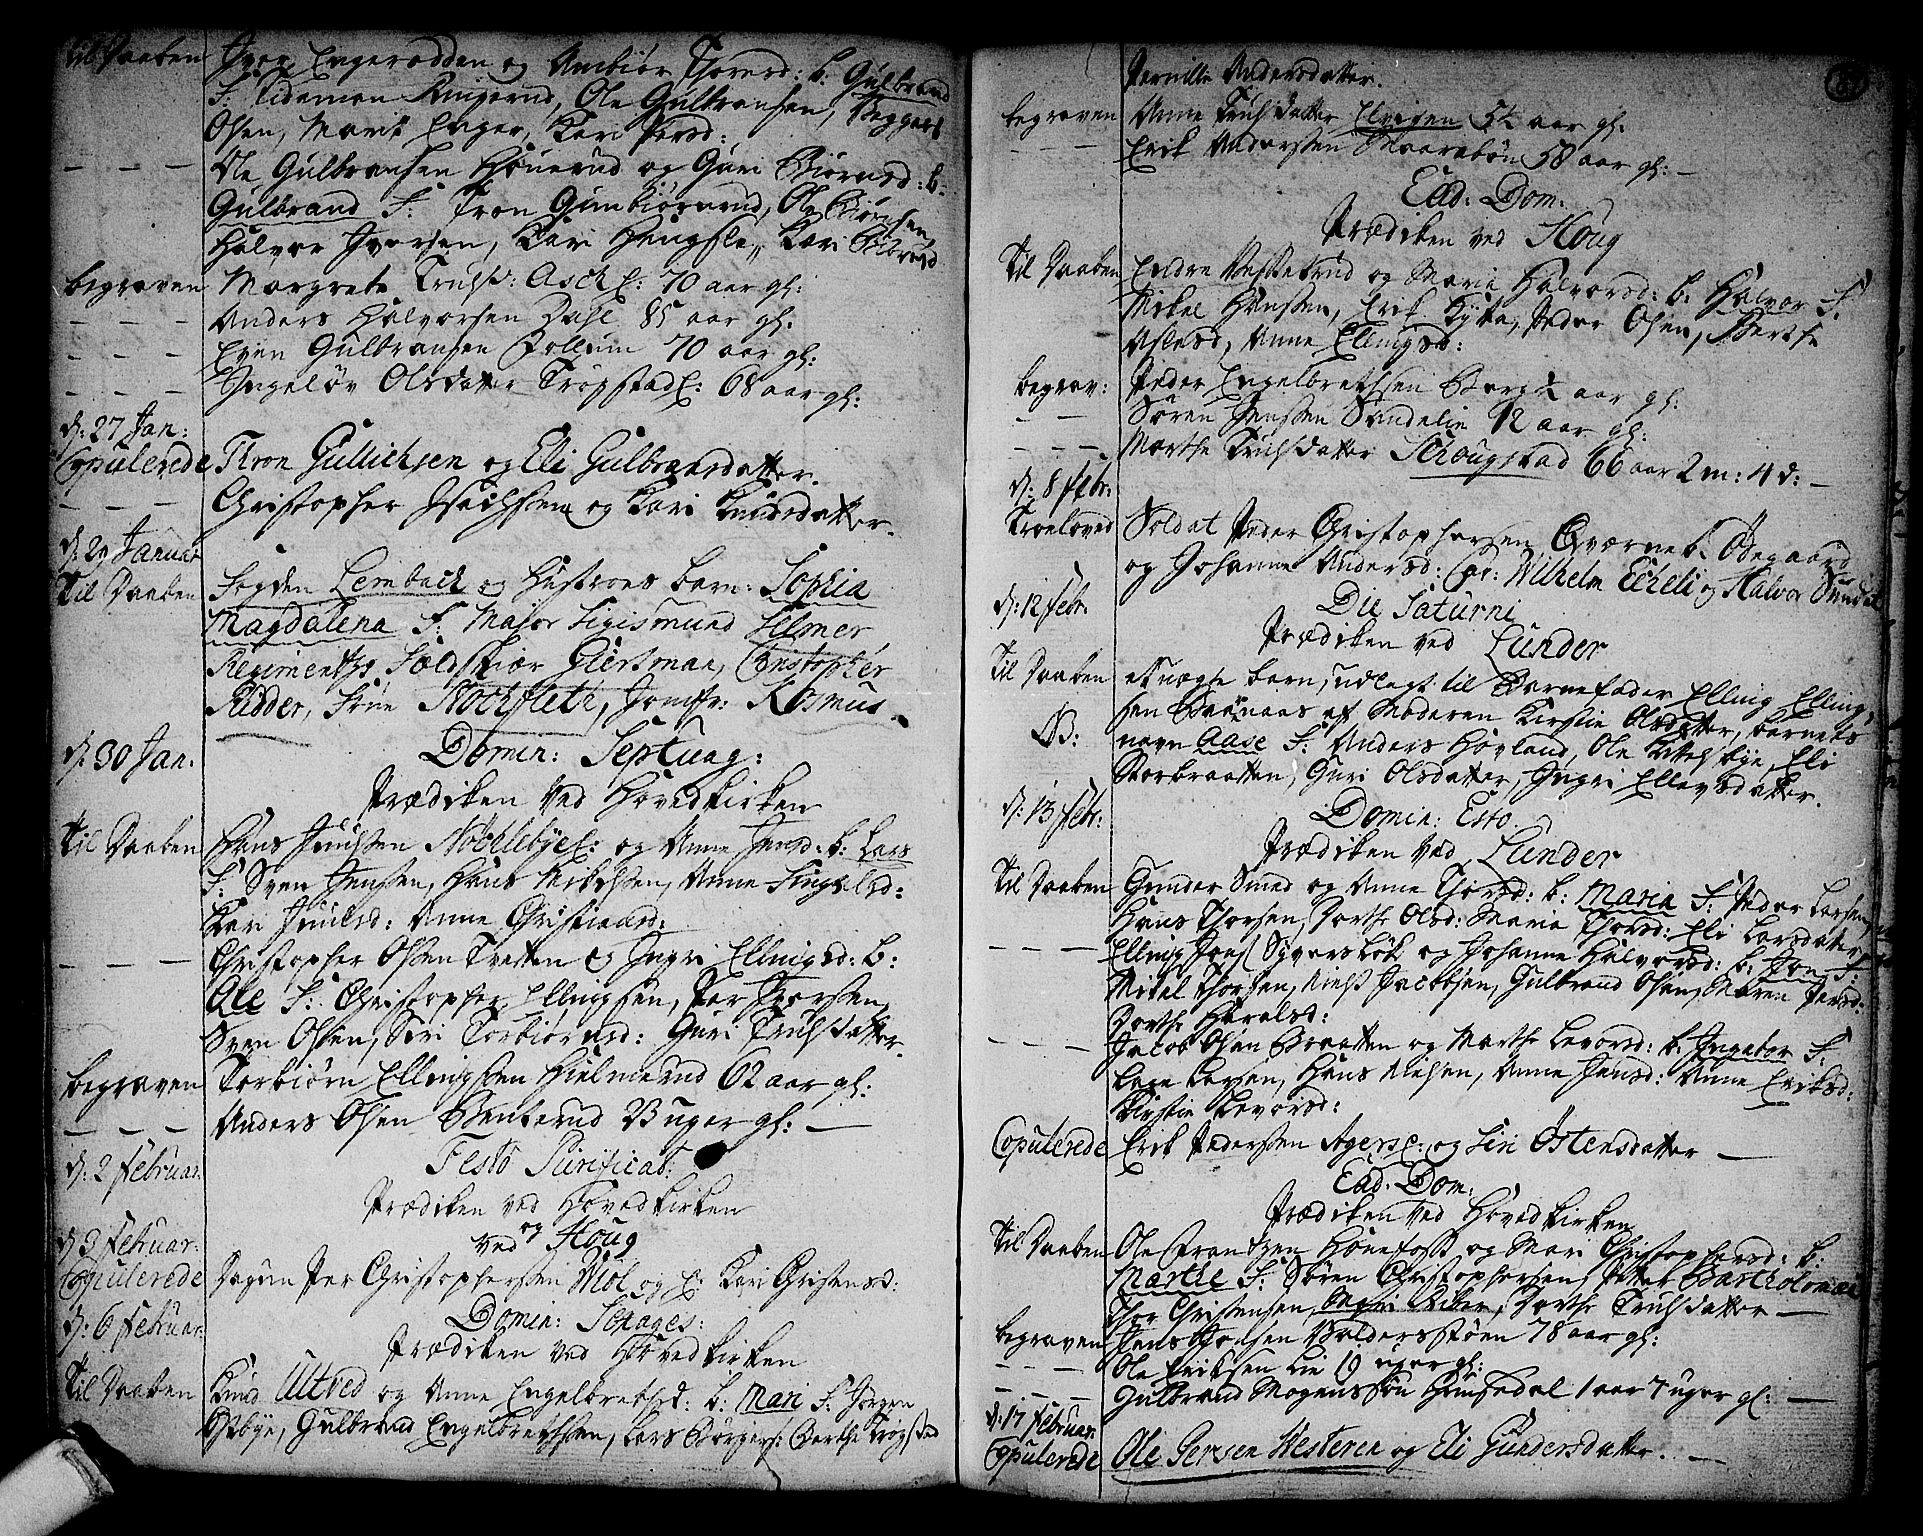 til Daaben Iver Engerodden og Anbiør Thoresd: b. Gulbrand
F: Tideman Ringerud, Ole Gulbransen, Begger
Olsen, Marit Enger, Kari Persd:
— — — Ole Gulbransen Hønerud og Guri Biørnsd: b.
Gulbrand F: Tron Gunbiørnrud, Ole Biørnsen,
Halvor Iversen, Kari Hengsle, Kari
begraven Margrete Trulsd: Asch E: 70 aar gl:
— — — Anders Halvorsen Dahl 85 aar gl:
— — — Even Gulbransen Follum 70 aar gl:
— — — Ingeløv Olsdatter Trøgstad E: 68 aar gl:
d: 27 Jan:
Copulerede Thron Gullichsen og Eli Gulbransdatter.
— — — Christopher Isachsen og Kari Knudsdatter.
d. 29 Januar
Til Daaben Fogden Lembach og Hustroes barn: Sophia
Magdalena F: Major Sigismund Selmer
Regiments Feldskiær Giertsman, Christopher
Ridder, Frue Nochfleth, Jomfr: Rosmus.
d. 30 Jan. Domin: Septuag:
Prædiken ved Hovedkirken
Til Daaben Hans Juulsen Nøchlebye E: og Anne Jensd: b: Lars
F: Sven Jensen, Hans Mikelsen, Anne
Kari Juulsd: Anne Christiansd:
— — — Christopher Olsen Tretten og Ingri Ellingsd: b:
Ole F: Christopher Ellingsen, Per Iversen
Sven Olsen, Siri Torbiørnsd: Guri Trulsdatter.
begraven Torbiørn Ellingsen Hielmerud 62 aar gl:
— — — Anders Olsen Benterud 8 uger gl: —
d: 2 Februar. Festo Purificat:
Prædiken ved Hovedkirken
d 3 Februar: ved og Houg
Copulerede Dagun Per Christophersen Moe og E: Kari Christensd:
d: 6 Februar: Domin: Sexages:
Prædiken ved Hovedkirken
Til Daaben Knud Ultved og Anne Engelbretsd: b: Mari F: Jørgen
Østbye, Gulbrand Engelbretsen, Lars Børgers: Berthe Trøgstad
Pernille Andersdatter.
begraven Anne Trulsdatter Elvigen 5½ aar gl:
— — — Erik Andersen 58 aar gl: —
Ead: Dom:
Prædiken ved Houg
Til Daaben Endre Vestebrud og Marie Halvorsd: b: Halvor F:
Mikel Hansen, Erik Lykke, Peder Olsen, Berthe
Aslesd, Anne Ellingsd:
begrav: Peder Engelbretsen Berg ½ aar gl:
— — Søren Jensen Sandelie 12 aar gl:
— — — Marthe Trulsdatter Schougstad 66 aar 2 m: 4 d: —
d: 8 Febr:
Troeloved Soldat Peder Christophersen Qværneb. Ødegaard
og Johanne Andersd: Cav: Wilhelm Echeli og Halvor Sundet
d: 12 Febr. Die Saturni
Prædiken ved Lunder
Til Daaben et uægte barn, udlagt til Barnefader Elling Elling-
sen af Moderen Kirstie Olsdatter, barnets
B: navn Aase F: Anders Høyland, Ole, Eli
Storbraatten, Guri Olsdatter, Ingri Ellevsdatter.
d: 13 Febr: Domin: Esto.
Prædiken ved Lunder
Til Daaben Gunder Smed og Anne Thorsd: b: Maria F: Peder Larsen,
Hans Thorsen, Dorthe Olsd: Marie Thorsd: Eli Larsdatter
— — — Elling Jons Syversbøk og Johanne Halvorsd: b: Jon F:
Mikel Thorsen, Niels Jacobsen, Gulbrand Olsen, Maren Persd:
Dorthe Haralsd:
— — — Jacob Olsen Braatten og Marthe Levorsd: b: Ingebor F:
Lage Larsen, Hans Nilsen, Anne Jensd: Anne Eriksd:
Kirstie Levorsd:
Copulerede Erik Pedersen Ager E: og Siri Østensdatter —
Ead: Dom:
Prædiken ved Hovedkirken
Til Daaben Ole Frantzen Hønefoss og Mari Christophersd: b:
Marthe F: Søren Christophersen, Petter Bartholomæ
Thor Christensen, Dorthe Trulsdatter —
begraven Jens Jonsen Boldersstøen 78 aar gl:
— — — Ole Eriksen Lie 19 uger gl:
— — — Gulbrand Mogensen 1 aar 7 uger gl: —
d: 17 Februar.
Copulerede Ole Persen Westeren og Eli Gundersdatter. —